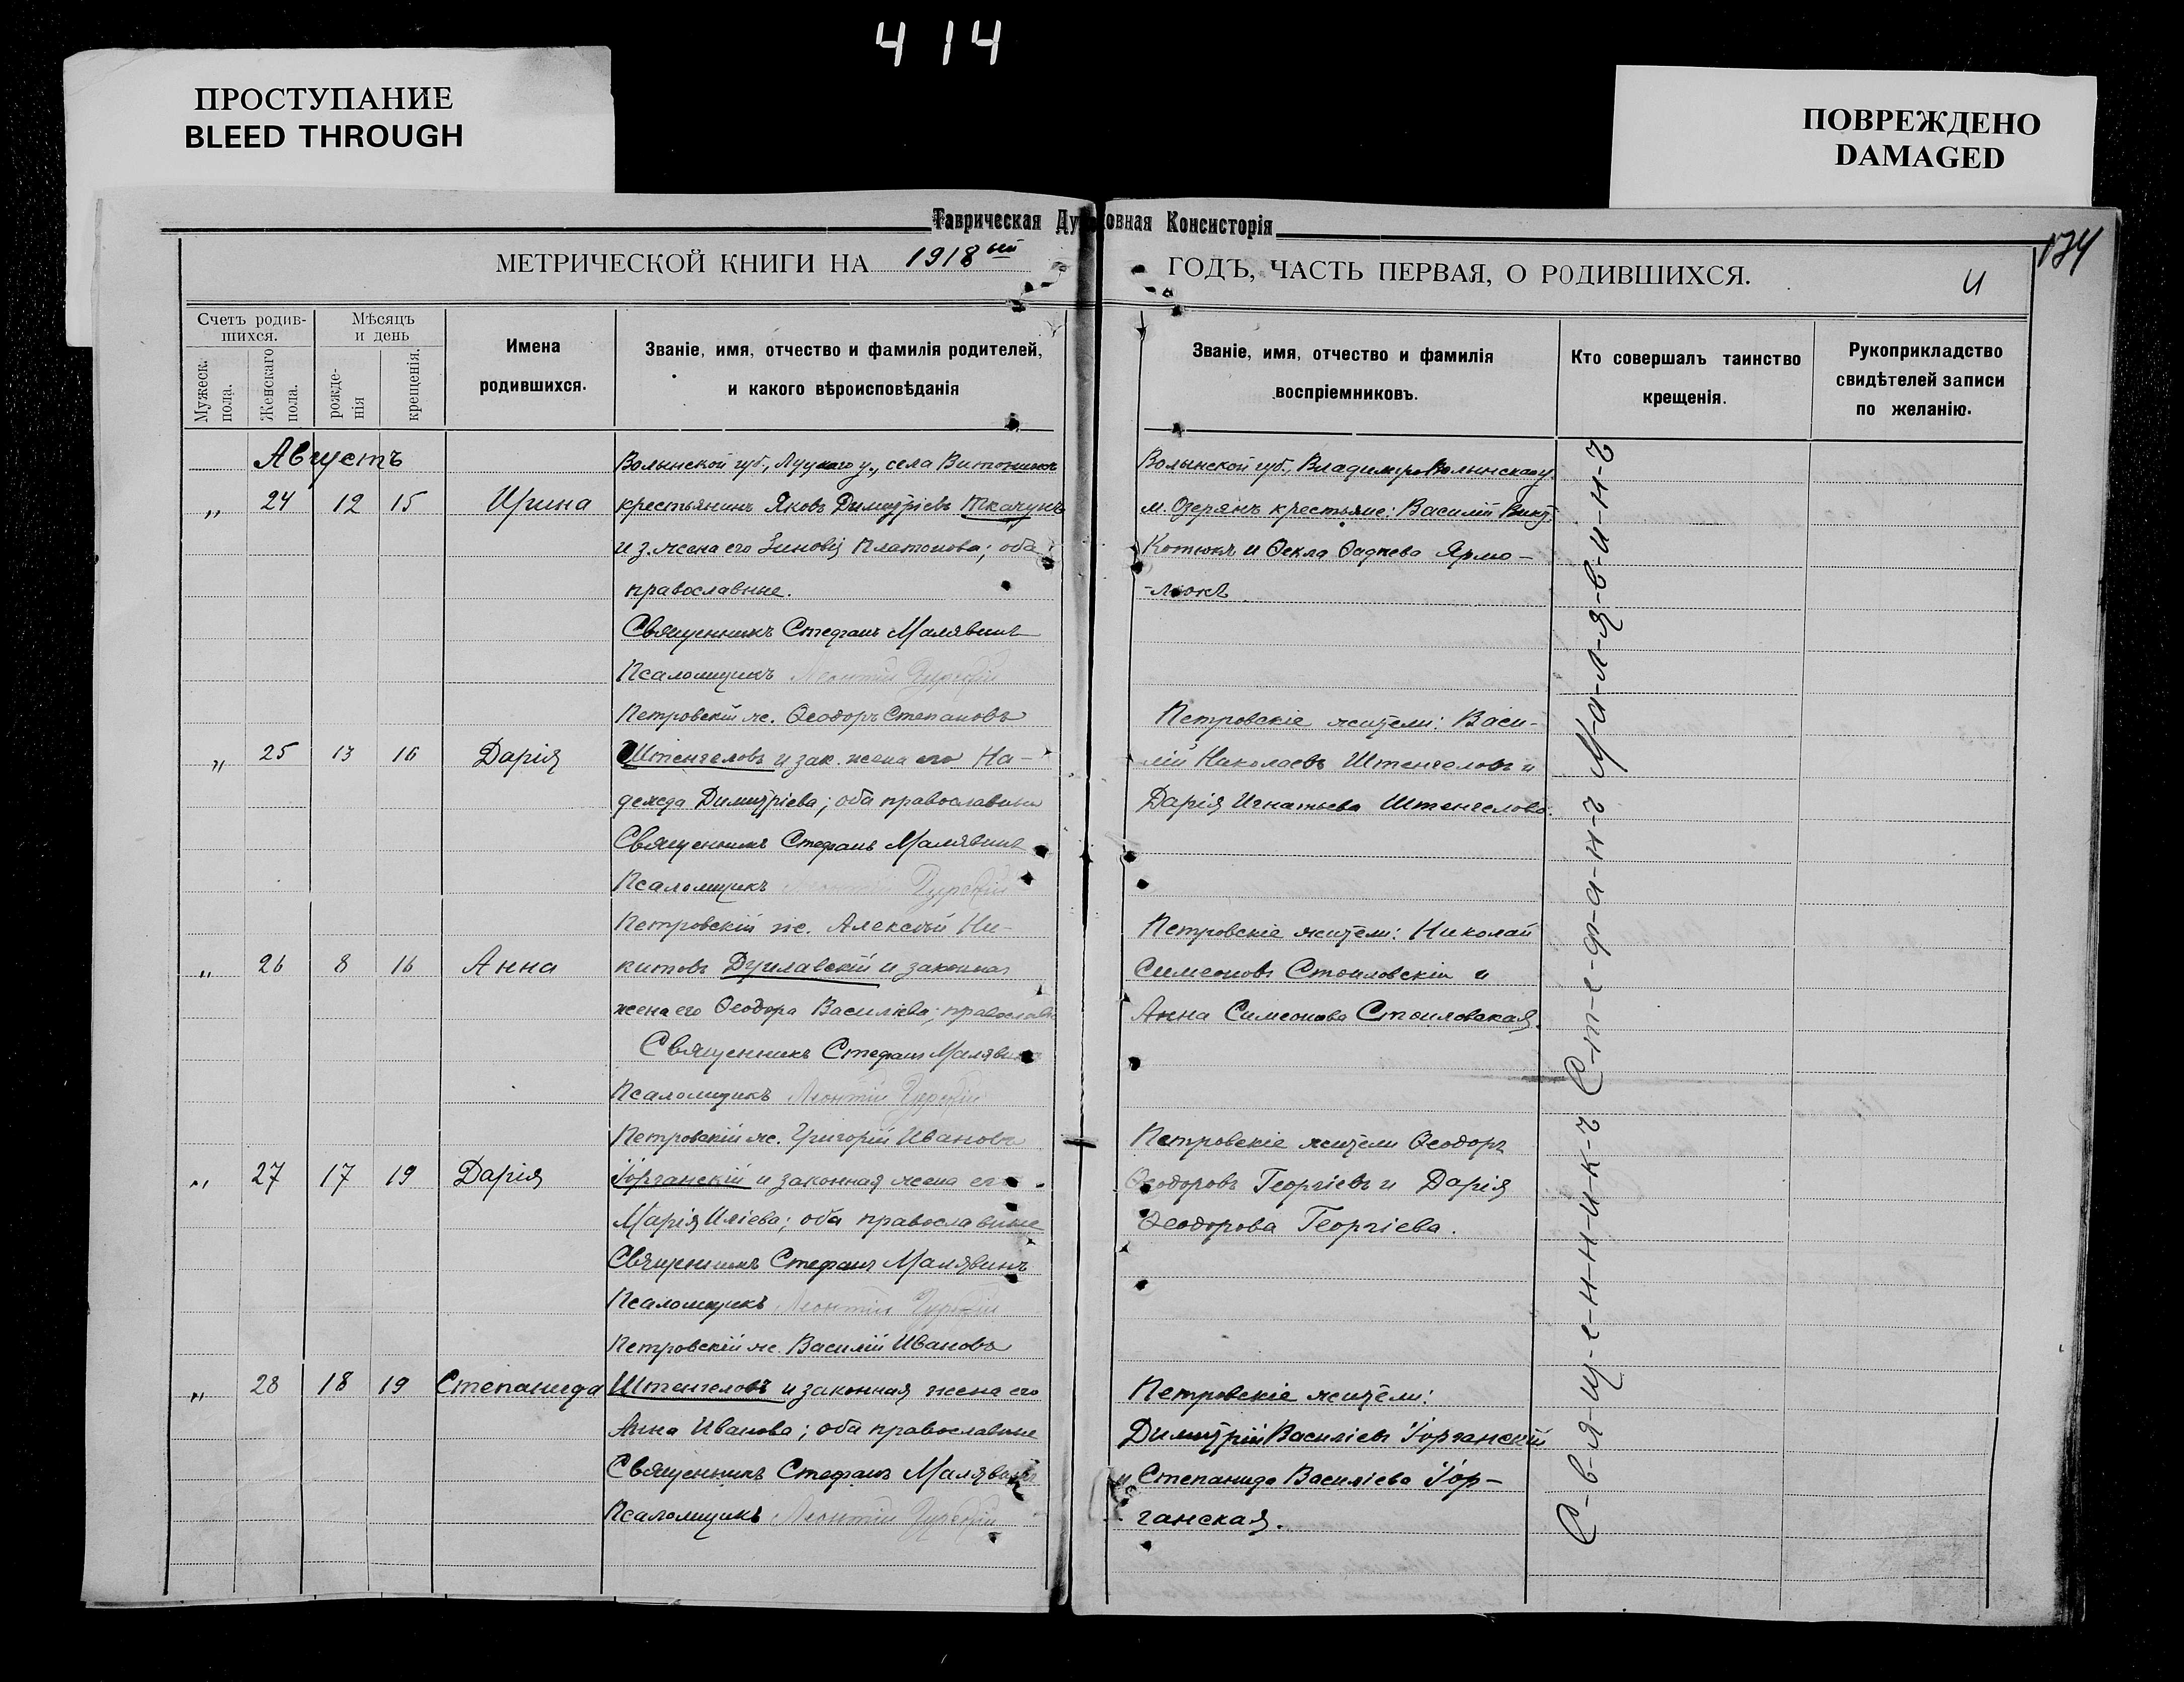 414
ПРОСТУПАНИЕ
BLEED THROUGH
ПОВРЕЖДЕНО
DAMAGED
Таврическая Духовная Консисторія
174
МЕТРИЧЕСКОЙ КНИГИ НА 1918ый ГОДЪ, ЧАСТЬ ПЕРВАЯ, О РОДИВШИХСЯ.
Счетъ родив-
шихся.
Мужеск.
пола.
Женскаго
пола.
Мѣсяцъ
и день
рожде-
нія
крещенія.
Имена
родившихся.
Званіе, имя, отчество и фамилія родителей,
и какого вѣроисповѣданія
Званіе, имя, отчество и фамилія
воспріемниковъ.
Кто совершалъ таинство
крещенія.
Рукоприкладство
свидѣтелей записи
по желанію.
Августъ
„ 24 12 15 Ирина
Волынской губ., Луцкаго у., села
крестьянинъ Яковъ Димитріевъ Ткачукъ
и з. жена его Зиновія Платонова; оба
православные.
Священникъ Стефанъ Малявинъ
Псаломщикъ Леонтій
Волынской губ., Владимиро Волынскаго у.
м. Озерянъ крестьяне: Василій
Котюкъ и Ѳекла Ѳаддѣева Ярмо-
-люкъ
„ 25 13 16 Дарія
Петровскій ж. Ѳеодоръ Степановъ
Штенгеловъ и зак. жена его На-
дежда Димитріева; оба православные
Священникъ Стефанъ Малявинъ
Псаломщикъ Леонтій
Петровскіе жители: Васи-
лій Николаевъ Штенгеловъ и
Дарія Игнатьева Штенгелова.
„ 26 8 16 Анна
Петровскій ж. Алексѣй Ни-
китовъ и законная
жена его Ѳеодора Василіева; православн
Священникъ Стефанъ Малявинъ
Псаломщикъ Леонтій
Петровскіе жители: Николай
Симеоновъ Стоиловскій и
Анна Симеонова Стоиловская.
„ 27 17 19 Дарія
Петровскій ж. Григорій Ивановъ
Горганскій и законная жена его
Марія Иліева; оба православные
Священникъ Стефанъ Малявинъ
Псаломщикъ Леонтій
Петровскіе жители Ѳеодоръ
Ѳеодоровъ Георгіевъ и Дарія
Ѳеодорова Георгіева.
„ 28 18 19 Степанида
Петровскій ж. Василій Ивановъ
Штенгеловъ и законная жена его
Анна Иванова; оба православные
Священникъ Стефанъ Малявинъ
Псаломщикъ Леонтій
Петровскіе жители:
Димитрій Василіевъ Горганскій
и Степанида Василіева Гор-
ганская.
С-в-я-щ-е-н-н-и-к-ъ С-т-е-ф-а-н-ъ М-а-л-я-в-и-н-ъ